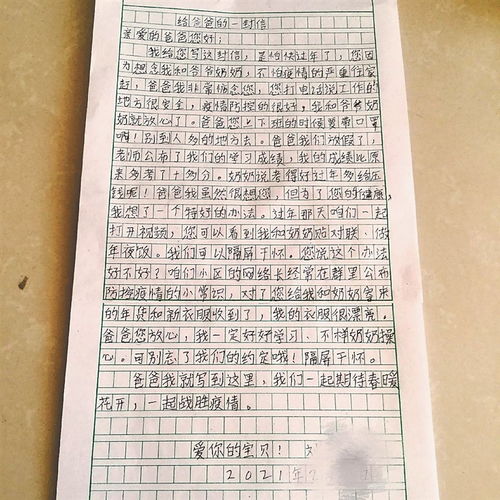 给爸爸的一封信
亲爱的爸爸您好:
我给您写这封信,是怕快过年了,您因
为想念我和爷爷奶奶,不怕疫情的严重往家
赶,爸爸我非常惦念您,您打电话说工作的
地方很安全,疫情防控的很好,我和爷爷奶
奶就放心了。爸爸您上下班的时候要戴口罩
啊!别到人多的地方去。爸爸我们放假了,
老师公布了我们的学习成绩,我的成绩比原
来多考了十多分。奶奶说考得好过年多给压
钱呢!爸爸我虽然很想您,但为了您的健康,
我想了一个特好的办法。过年那天咱们一起
打开视频,您可以看到我和奶奶贴对联、做
年夜饭。我们可以隔屏干怀。您说这个办法
好不好?咱们小区的网络长经常在群里公布
防控疫情的小常识,对了您给我和奶奶拿来
的年货和新衣服收到了,我的衣服很漂亮。
爸爸您放心,我一定好好学习、不样奶奶操
心。可别忘了我们的约定哦!隔屏干怀。
爸爸我就写到这里,我们一起期待春暖
花开,一起战胜疫情。
爱你的宝贝!刘
2021年